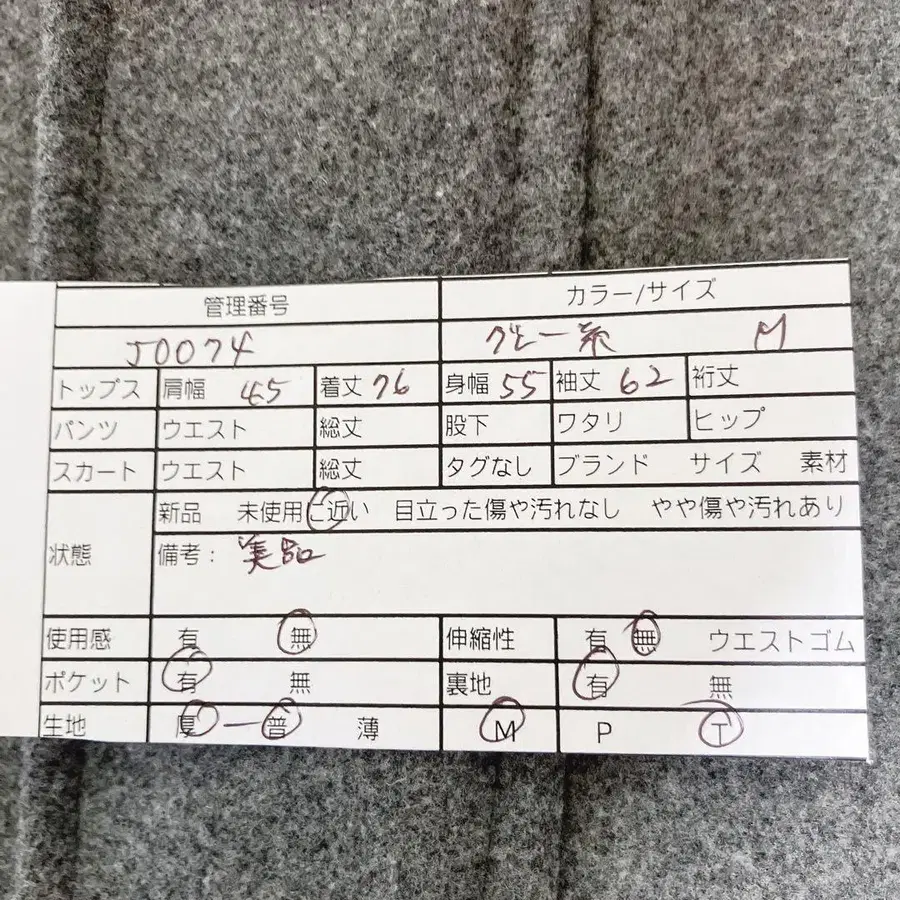 管理番号 カラー/サイズ
J0074 グレー系 M
トップス 肩幅 45 着丈 76 身幅 55 袖丈 62 裄丈
パンツ ウエスト 総丈 股下 ワタリ ヒップ
スカート ウエスト 総丈 タグなし ブランド サイズ 素材
新品 未使用に近い 目立った傷や汚れなし やや傷や汚れあり
状態 備考: 美品
使用感 有 無 伸縮性 有 無 ウエストゴム
ポケット 有 無 裏地 有 無
生地 厚 普 薄 M P T